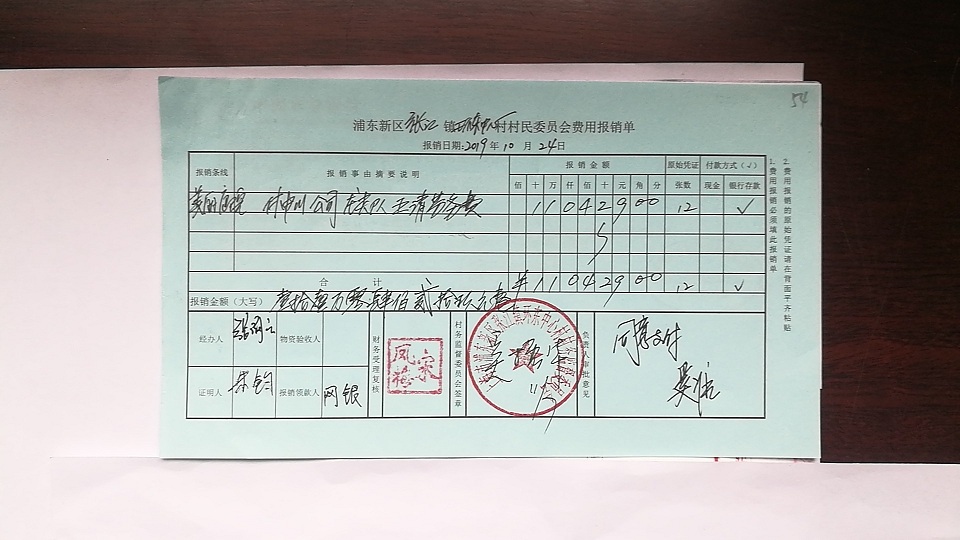 54
浦东新区张江镇环东中心村村民委员会费用报销单
报销日期:2019年10月24日
报销条线 报销事由摘要说明 报销金额 原始凭证 付款方式(√)
佰 十 万 仟 佰 十 元 角 分 张数 现金 银行存款
美丽庭院 村申川公司 1 1 0 4 2 9 0 0 12 √
合计 ¥ 1 1 0 4 2 9 0 0 12 √
报销金额(大写) 壹拾壹万零肆佰贰拾玖元整
经办人 物资验收人 财务受理复核 村务监督委员会签章 负责人审批意见 同意支付
证明人 报销领款人 网银
1.费用报销必须填此报销单
2.费用报销的原始凭证请在背面平齐粘贴